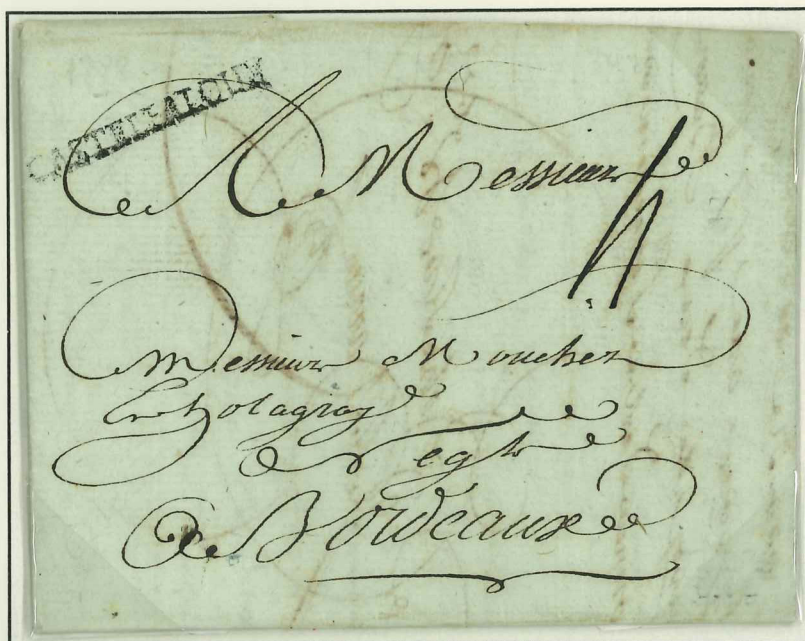 CASTELJALOUX
A Messieurs
4
Messieurs Mouchez
Et
Negts
A Bordeaux